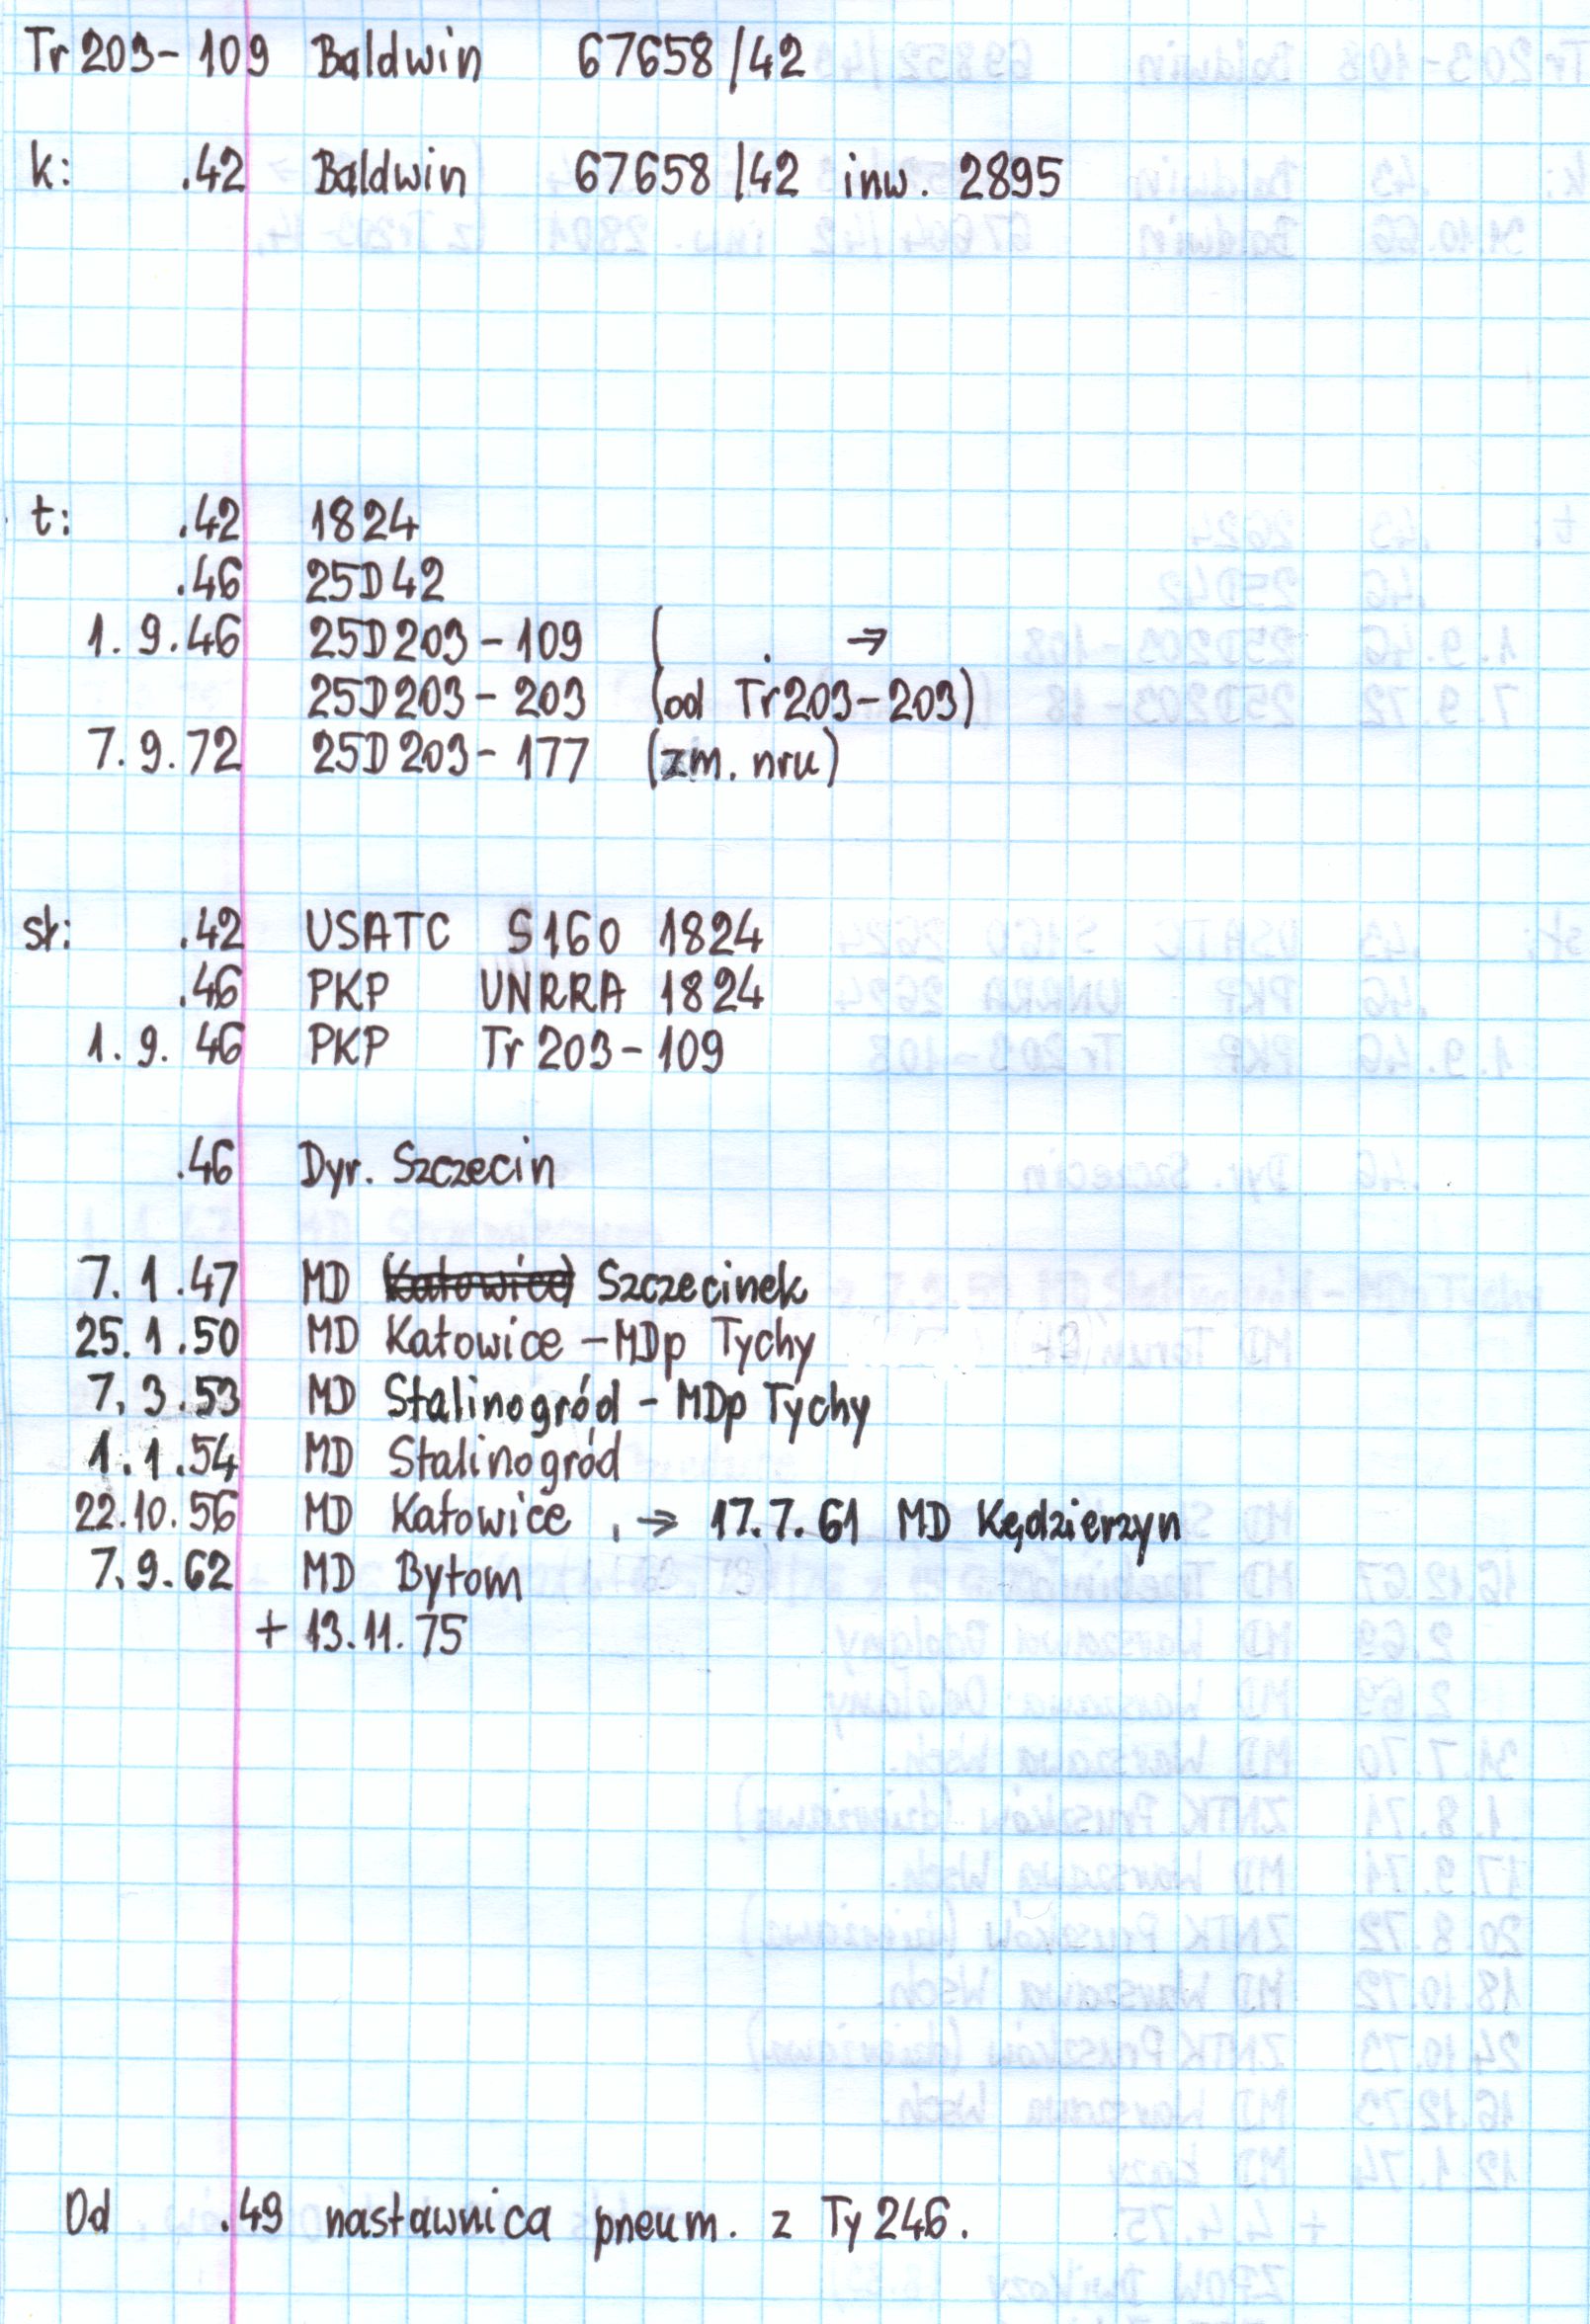 Tr203-109 Baldwin 67658/42
k: .42 Baldwin 67658/42 inw. 2895
t: .42 1824
.46 25D42
1.9.46 25D203-109 ( . →
25D203-203 (od Tr203-203)
7.9.72 25D203-177 (zm. nru)
st: .42 USATC S160 1824
.46 PKP UNRRA 1824
1.9.46 PKP Tr203-109
.46 Dyr. Szczecin
7.1.47 MD Katowice Szczecinek
25.1.50 MD Katowice - MDp Tychy
7.3.53 MD Stalinogród - MDp Tychy
1.1.54 MD Stalinogród
22.10.56 MD Katowice , → 17.7.61 MD Kędzierzyn
7.9.62 MD Bytom
+ 13.11.75
Od .49 nastawnica pneum. z Ty246.